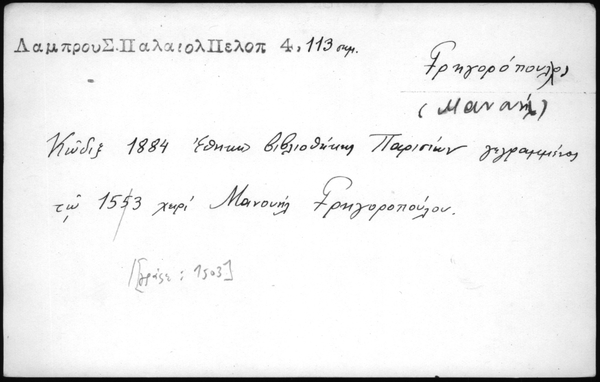 ΛαμπρουΣ.ΠαλαιολΠελοπ 4, 113 σημ.
Γρηγορόπουλος
(Μανουήλ)
Κῶδιξ 1884 Ἐθνικῆς βιβλιοθήκης Παρισίων γεγραμμένος
τῷ 1553 χειρί Μανουήλ Γρηγοροπούλου.
[γράφε: 1503]